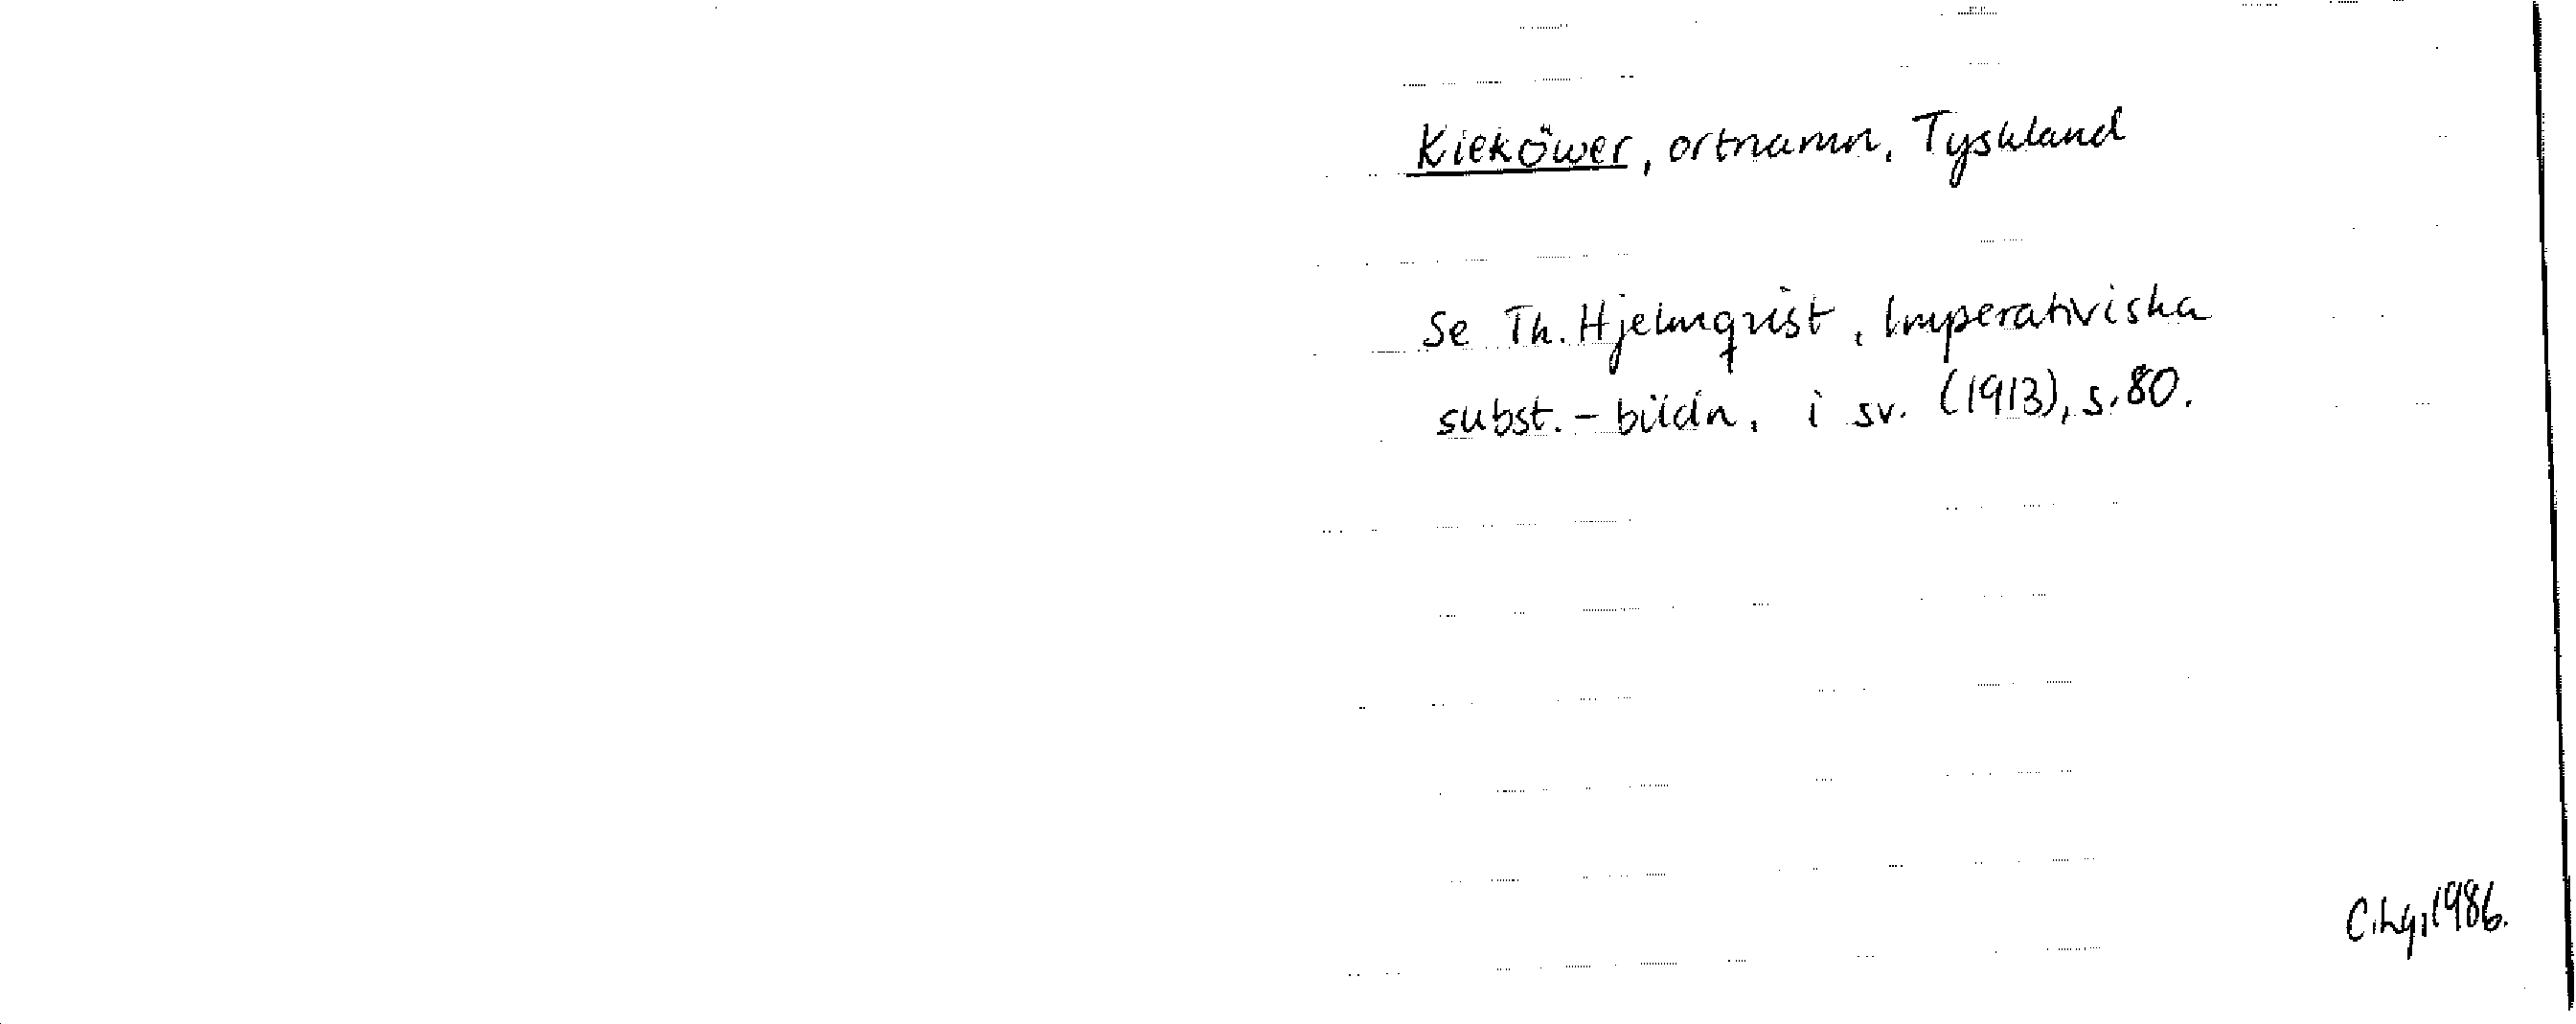 Kieköwer, ortnamn, Tyskland
Se Th. Hjelmqvist, Imperativiska
subst.-bildn. i sv. (1913), s. 80.
C.Lg, 1986.